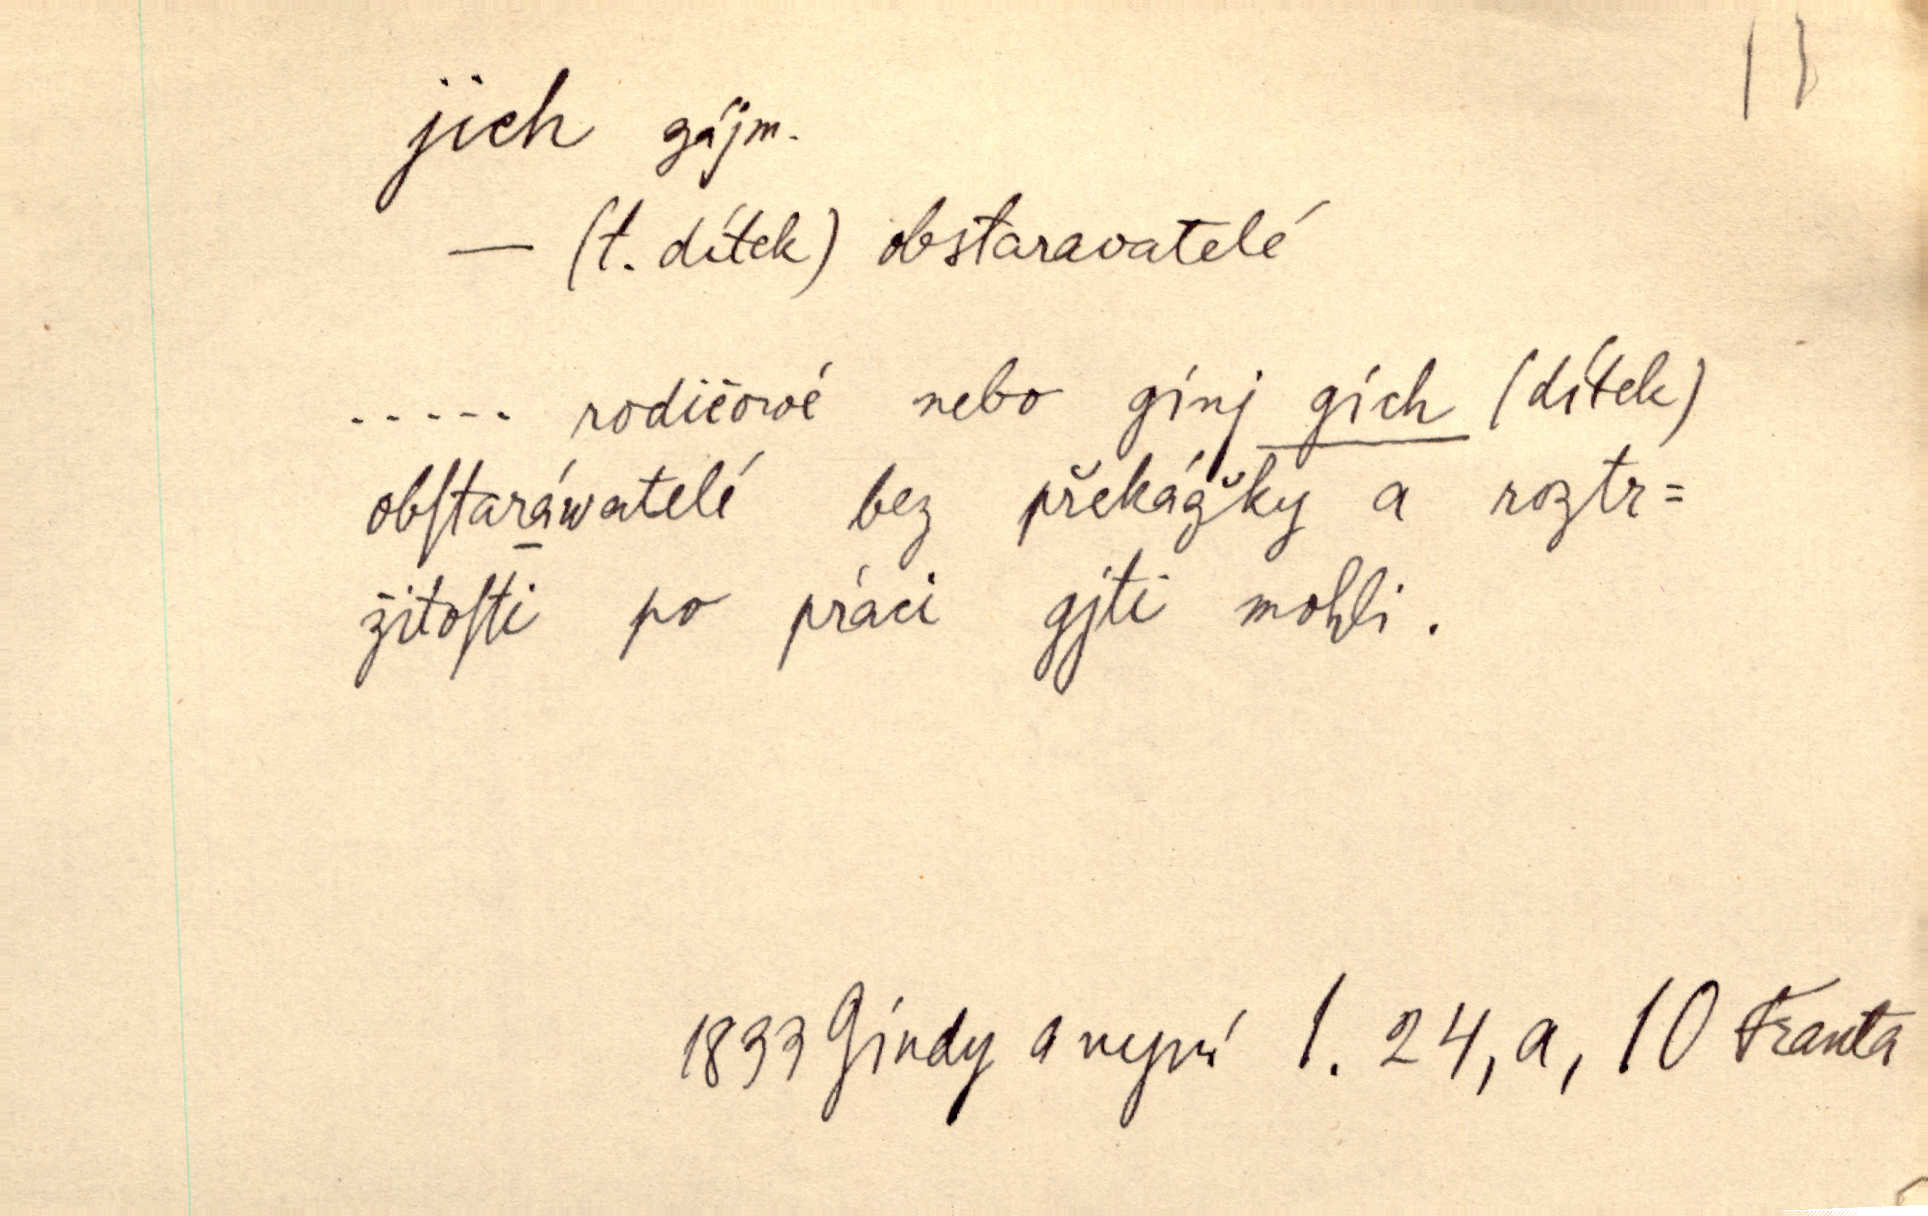 jich zájm.
— (t. dítek) obstaravatelé
..... rodičowé nebo ginj gich (dítek)
obſtaráwatelé bez překážky a roztr=
žitoſti po práci gjti mohli.
1833 Gindy a nyní 1. 24, a, 10 Franta